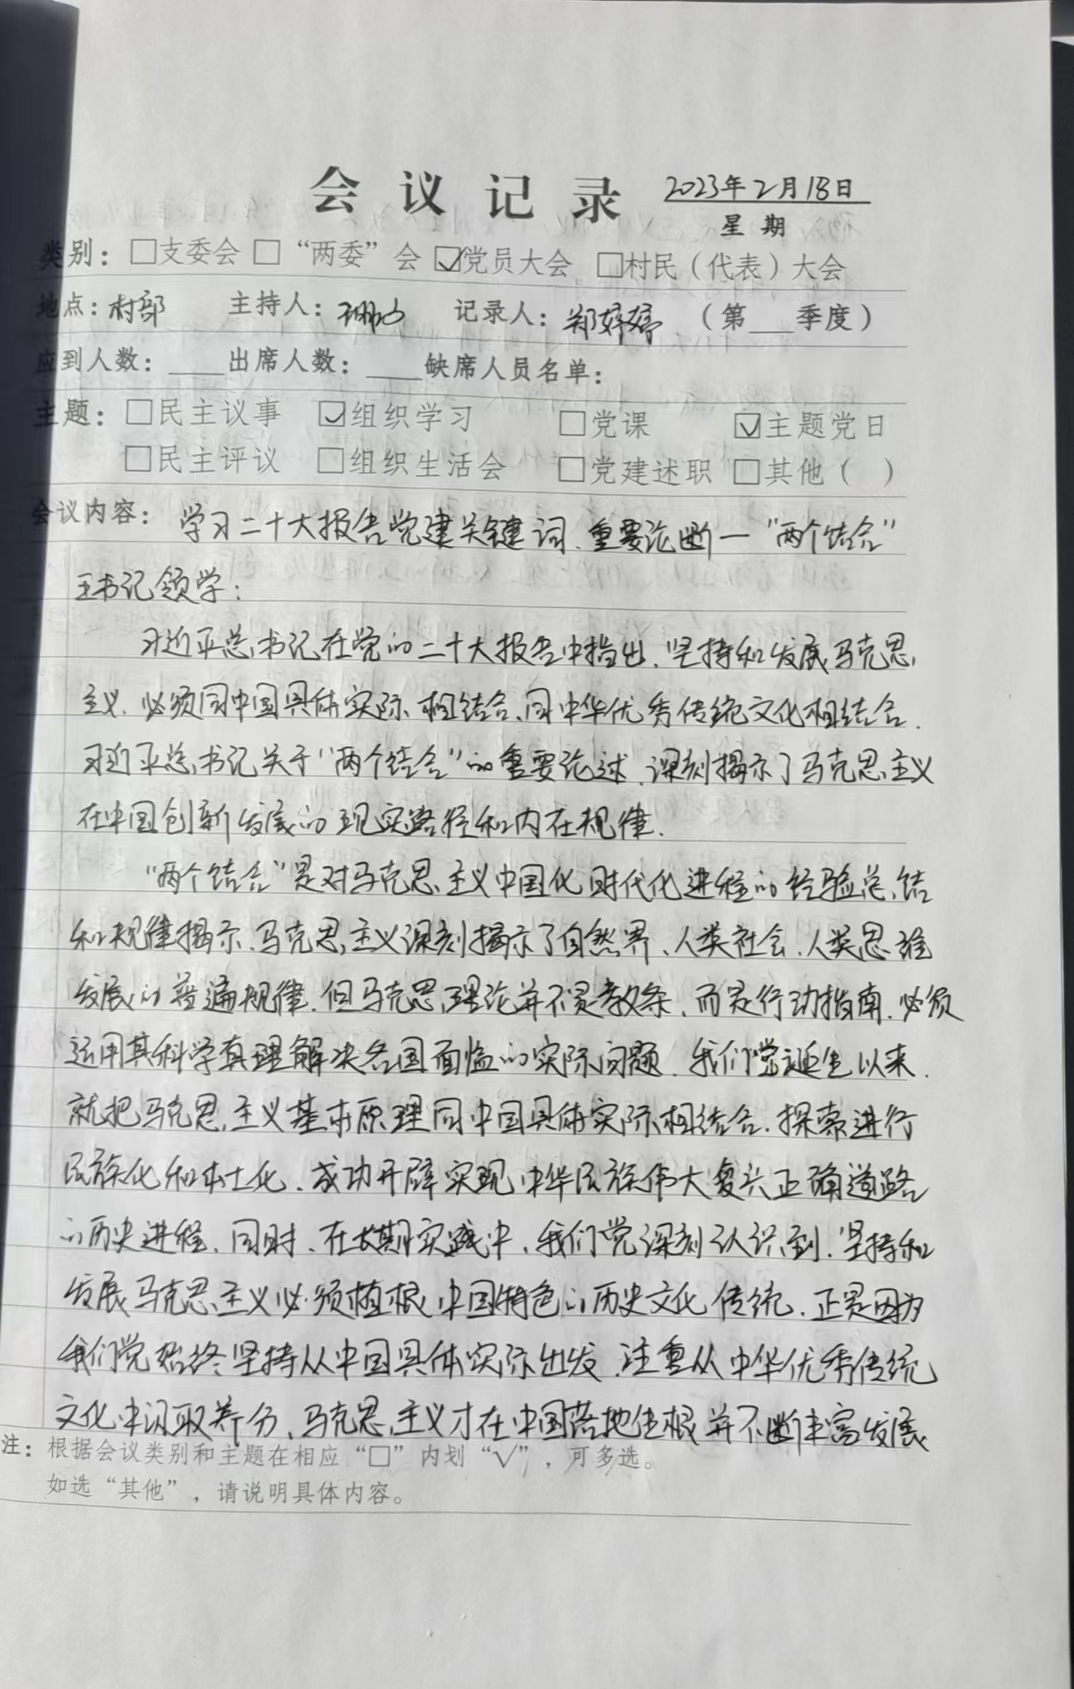 会议记录 2023年2月18日
星期
类别：□支委会 □“两委”会 ☑党员大会 □村民（代表）大会
地点：村部 主持人： 记录人：郑婷婷 （第___季度）
应到人数：____出席人数：____缺席人员名单：
主题：□民主议事 ☑组织学习 □党课 ☑主题党日
□民主评议 □组织生活会 □党建述职 □其他（ ）
会议内容：学习二十大报告党建关键词、重要论断—“两个结合”
王书记领学：
习近平总书记在党的二十大报告中指出、坚持和发展马克思
主义、必须同中国具体实际相结合、同中华优秀传统文化相结合.
习近平总书记关于“两个结合”的重要论述、深刻揭示了马克思主义
在中国创新发展的现实路径和内在规律.
“两个结合”是对马克思主义中国化时代化进程的经验总结
和规律揭示、马克思主义深刻揭示了自然界、人类社会、人类思维
发展的普遍规律.但马克思理论并不是教条、而是行动指南、必须
运用其科学真理解决各国面临的实际问题. 我们党诞生以来.
就把马克思主义基本原理同中国具体实际相结合.探索进行
民族化和本土化、成功开辟实现中华民族伟大复兴正确道路
的历史进程.同时、在长期实践中、我们党深刻认识到.坚持和
发展马克思主义必须植根中国特色的历史文化传统、正是因为
我们党始终坚持从中国具体实际出发、注重从中华优秀传统
文化中汲取养分、马克思主义才在中国落地生根并不断丰富发展
注：根据会议类别和主题在相应“□”内划“√”，可多选。
如选“其他”，请说明具体内容。